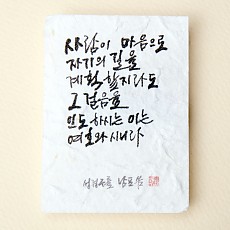 사람이 마음으로
자기의 길을
계획 할지라도
그 걸음을
인도 하시는 이는
여호와시니라